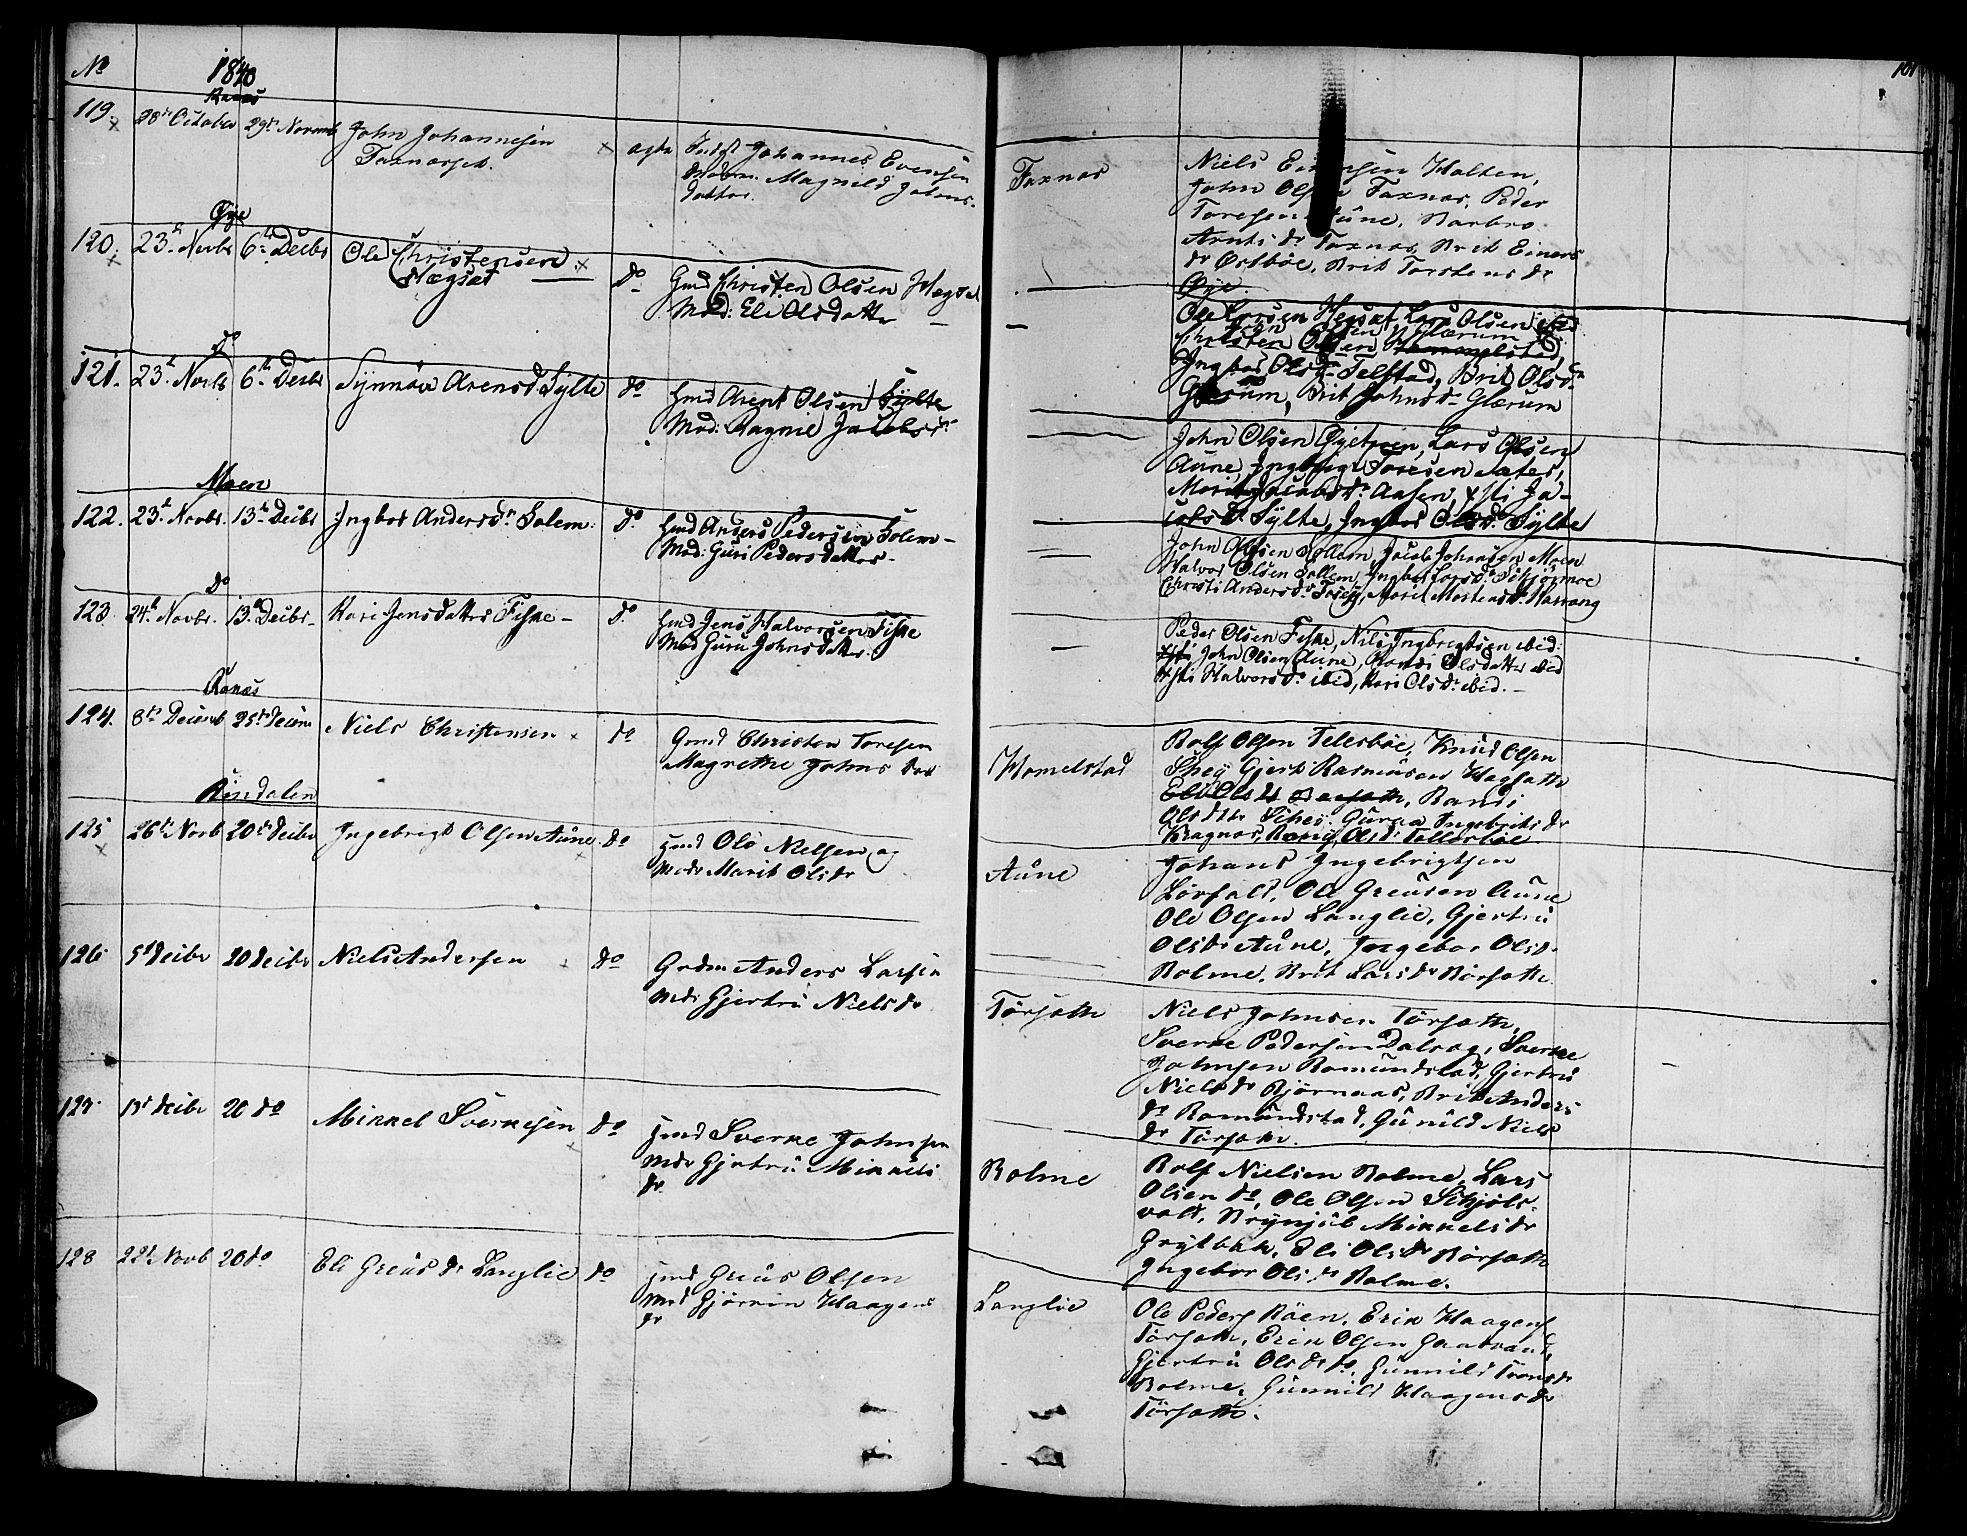 No 1840 101
Ranæs
119. 28de October 29de Novemb John Johannesen × ægte Indst Johannes Evensen
Faxnæsset. Madm. Magnild Johns-
datter.
Faxnæs Niels Halten,
John Olsen Faxnæs, Peder
Toresen Aune, Barbro
Arnts dr Faxnæs, Brit Einers
dr Østbøe, Brit Torstens dr
Øye.
Øye
120. 23de Novbr 6te Decbr Ole Christensen × do Gmd Christen Olsen Hægset
Hægset Mod: Eli Olsdatter
Ole Larsen Hegset, Lars Olsen ibid
Christen Olsen Glærum
Ingbor Olsdr Telstad, Brit Olsdr
Glærum, Brit Johnsdr Glærum
do
121. 23de Novbr 6te Decbr Synnøve Arensd Sylte do Hmd Arent Olsen Sylte
Mod: Ragnil Jacobsdr
John Olsen Øyetrøen, Lars Olsen
Aune, Ingbrigt Toresen Sæter,
Marit Jacobsdr Aasen, Ja-
cobsdr Sylte, Ingbor Olsdr Sylte
Moen
122. 23de Novbr. 13de Decbr Ingbor Andersdr Solem. do Hmd Anders Pedersen Solem-
Mod: Guri Pedersdatter.
John Olsen Sollem, Jacob Johansen Moen
Halvor Olsen Sollem, Ingbor Larsdr
Christi Andersdr Marit Mortensdr
do
123. 24de Novbr. 13de Decbr- Kari Jensdatter Fiske- do Hmd Jens Halvorsen Fiske
Mod Guru Johnsdatter
Peder Olsen Fiske, Nils Ingbregtsen ibid:
John Olsen Aune, Randi Olsdatter ibid
Halvorsdr ibid, Kari Olsdr ibid.-
Ranæs
124. 8de Decemb 25de Decem Niels Christensen × do Grmd Christen Toresen
Magrethe Johns datr
Homelstad Rolf Olsen Telesbøe, Knud Olsen
Gjert Rasmusen Hagsæth
Randi
Olsdtr Gunna Ingebrits dr
Olsdr Tellesbøe.
Rindalen
125 26de Novb 20de Decbr Ingebrigt Olsen Aune do Hmd Ole Nielsen og
Modr Marit Olsdr
Aune Johans Ingebrigtsen
Løsfalt, Ole Greusen Aune
Ole Olsen Langlie, Gjertru
Olsdr Aune, Ingebor Olsdr
Bolme, Brit Larsdr Børsæth
126 5t Decbr 20 Decbr Niels Andersen × do Grdm Anders Larsen
Modr Gjertru Nielsdr
Tørsæth Niels Johnsen Tørsæth,
Sverke Pedersen Dalsæg, Sverke
Johnsen Romundstad, Gjertru
Nielsdr Bjørnaas, Brit Anders
dr Romundstad, Gunild Niels
dr Tørsæth.
127 1st Decbr 20 do Mikkel Sverkesen do Hmd Sverke Johnsen
Modr Gjertru Mikkels
dr
Bolme Rolf Nielsen Bolme, Lars
Olsen do, Ole Olsen Skjøls-
vold, Brynjul Mikkelsdr
Grytbak, Eli Olsdr Børsæth
Ingebor Olsdr Bolme.
128 22d Novb 20 do Eli Greusdr Langlie do Hmd Greus Olsen
Mod Gjørnin Haagens
dr
Langlie Ole Peders Røen, Erik Haagens
Tørsæth, Erik Olsen
Gjertru Olsdr do, Gunnild Tronsdr
Bolme, Gunnild Haagensdr
Tørsæth.